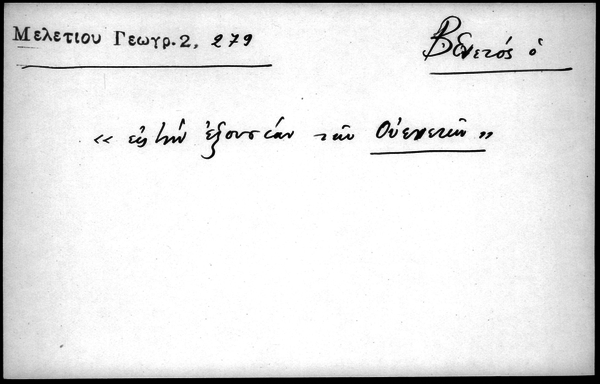 Μελετιου Γεωγρ. 2, 279
Βενετός ὁ
« εἰς τὴν ἐξουσίαν τῶν Οὐενετῶν »